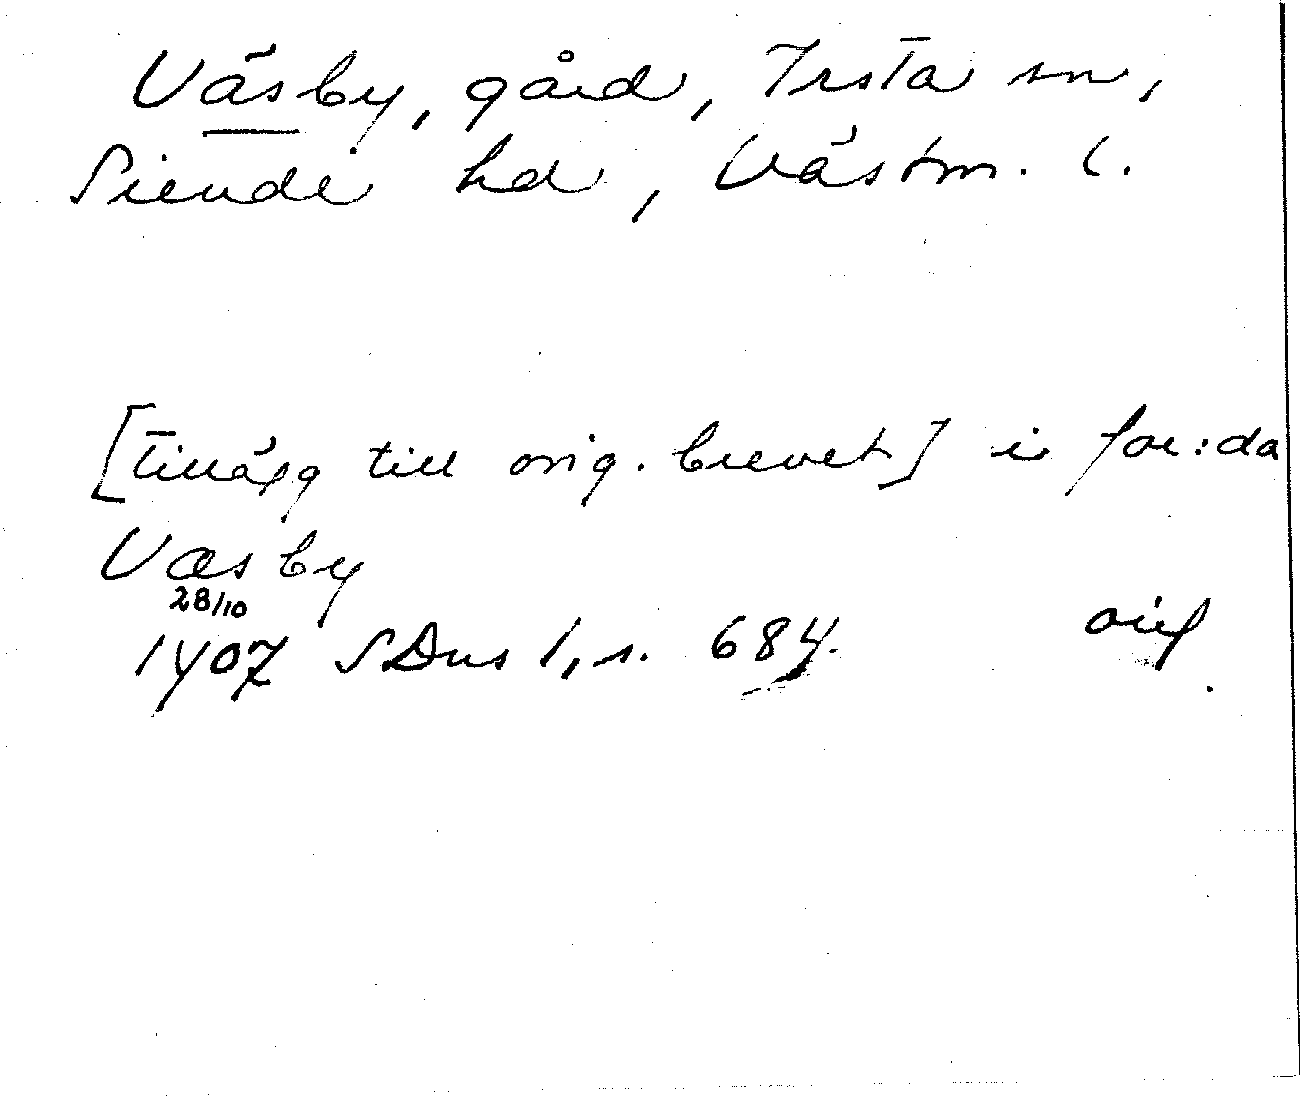 Väsby, gård, Irsta sn,
Siende hd, Västm. l.
[Tillägg till orig. brevet] i for:da
Væsby
28/10
1407 SDns 1, s. 684. or